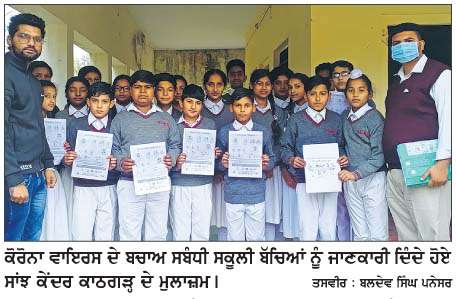 ਕੋਰੋਨਾ ਵਾਇਰਸ ਦੇ ਬਚਾਅ ਸਬੰਧੀ ਸਕੂਲੀ ਬੱਚਿਆਂ ਨੂੰ ਜਾਣਕਾਰੀ ਦਿੰਦੇ ਹੋਏ
ਸਾਂਝ ਕੇਂਦਰ ਕਾਠਗੜ੍ਹ ਦੇ ਮੁਲਾਜ਼ਮ। ਤਸਵੀਰ : ਬਲਦੇਵ ਸਿੰਘ ਪਨੇਸਰ